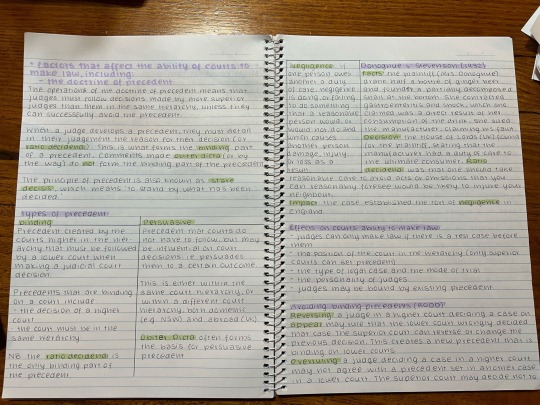 * Factors that affect the ability of courts to
make law, including:
- the doctrine of precedent
The operations of the doctrine of precedent means that
judges must follow decisions made by more superior
judges than them in the same hierarchy, unless they
can successfully avoid the precedent.
When a judge develops a precedent, they must detail
in their judgement the reason for their decision (or
ratio decidendi). This is what forms the binding part
of a precedent. Comments made obiter dicta (or by
the way) do not form the binding part of the precedent
The principle of precedent is also known as 'stare
decisis', which means to stand by what has been
decided.
Types of precedent:
Binding
Precedent created by the
courts higher in the hier-
archy that must be followed
by a lower court when
making a judicial court
decision.
Precedents that are binding
on a court include
- the decision of a higher
court
- the court must be in the
same hierarchy
NB the ratio decidendi is
the only binding part of
the precedent
Persuasive
Precedent that courts do
not have to follow, but may
be influential on court
decisions i.e. persuades
them to a certain outcome.
This is either within the
same court hierarchy, or
within a different court
hierarchy, both domestic
(e.g. NSW) and abroad (UK)
Obiter Dicta often forms
the basis for persuasive
precedent
Negligence: if
one person owes
another a duty
of care, negligence
is doing or failing
to do something
that a reasonable
person would or
would not do and
which causes
another person
damage, injury
or loss as a
Donoghue v Stevenson (1932)
Facts: the plaintiff (Mrs. Donoghue)
drank half a bottle of ginger beer
and found a partially decomposed
snail at the bottom. She contracted
gastroenteritis and shock, which she
claimed was a direct result of her
consumption of the drink. She sued
the manufacturer, claiming his
Decision: the House of Lords (UK) found
for the plaintiff, stating that the
manufacturer had a duty of care to
the ultimate consumer. Ratio
decidendi: was that one should take
reasonable care to avoid acts or omissions that you
can reasonably foresee would be likely to injure your
neighbour.
Impact: the case established the tort of negligence in
England.
Effects on courts ability to make law:
- judges can only make law if there is a test case before
them
- the position of the court in the hierarchy (only superior
courts can set precedent)
- the type of legal case and the mode of trial
- the personality of judges
- judges may be bound by existing precedent
Avoiding binding precedents (RODD)
Reversing: a judge in a higher court deciding a case on
appeal may rule that the lower court wrongly decided
that case. The superior court can reverse or change the
previous decision. This creates a new precedent that is
binding on lower courts.
Overruling: a judge deciding a case in a higher court
may not agree with a precedent set in another case
in a lower court. The superior court may decide not to